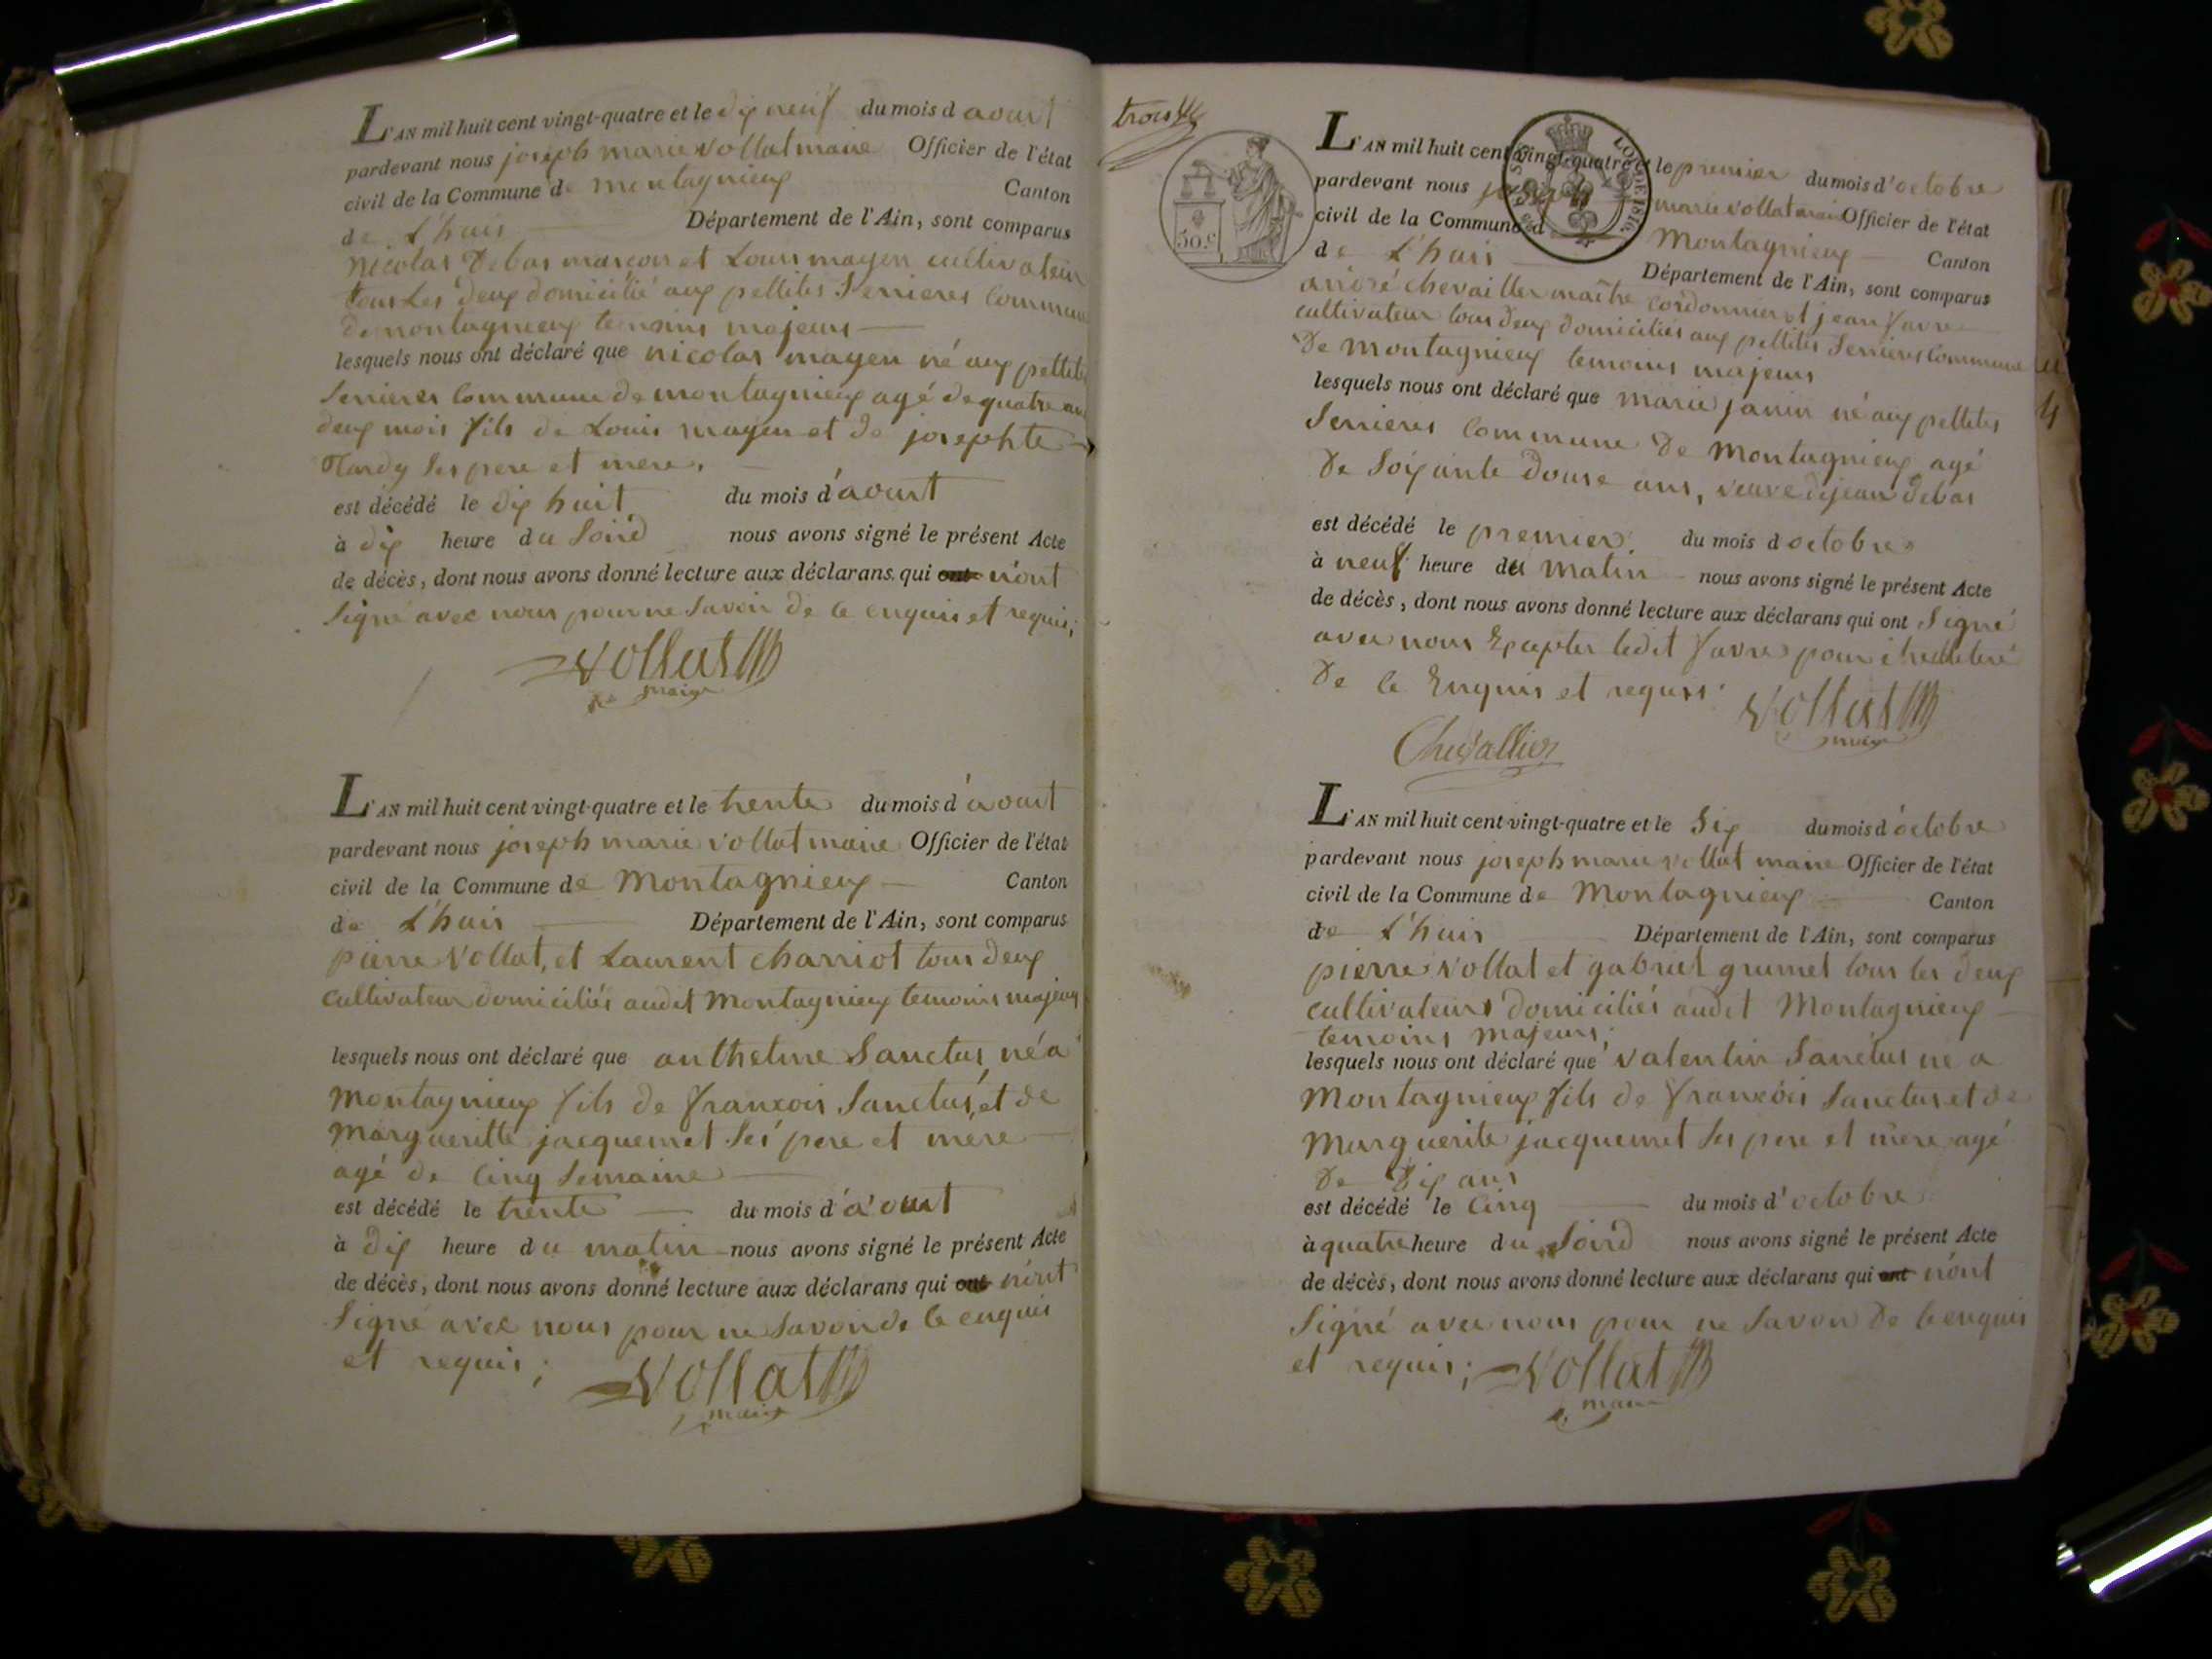 L'AN mil huit cent vingt-quatre et le dix neuf du mois d aoust
pardevant nous joseph marie vollat maire Officier de l'état
civil de la Commune de montagnieux Canton
de L'huis Département de l'Ain, sont comparus
nicolas Debas masçon et Louis mayen cultivateur
tous Les deux domicilié aux pettites Serrieres Commune
de montagnieux temoins majeurs
lesquels nous ont déclaré que nicolas mayen né aux pettites
Serrieres Commune de montagnieux agé de quatre ans
deux mois fils de Louis mayen et de josephte
Tardy Ses pere et mere,
est décédé le dix huit du mois d'aoust
à dix heure du Soird nous avons signé le présent Acte
de décès, dont nous avons donné lecture aux déclarans qui ont n'ont
Signé avec nous pour ne Savoir de ce enquis et requis;
Vollat
maire
L'AN mil huit cent vingt-quatre et le trente du mois d'aoust
pardevant nous joseph marie vollat maire Officier de l'état
civil de la Commune de Montagnieux Canton
de L'huis Département de l'Ain, sont comparus
pierre Vollat, et Laurent charriot tous deux
cultivateur domiciliés audit Montagnieux temoins majeurs
lesquels nous ont déclaré que anthelme Sanctus, né a
Montagnieux fils de françois Sanctus, et de
Margueritte jacquemet Ses pere et mère
agé de Cinq Semaine
est décédé le trente du mois d'aoust
à dix heure du matin nous avons signé le présent Acte
de décès, dont nous avons donné lecture aux déclarans qui ont n'ont
Signé avec nous pour ne Savoir de ce enquis
et requis;
Vollat
maire
trois
50.c
LOI DE 1816
L'AN mil huit cent vingt-quatre et le premier du mois d'octobre
pardevant nous joseph marie vollat maire Officier de l'état
civil de la Commune d Montagnieux Canton
de L'huis Département de l'Ain, sont comparus
andré chevailler maître cordonnier et jean favre
cultivateur tous deux domiciliés aux pettites Serrieres Commune
De montagnieux temoins majeurs
lesquels nous ont déclaré que marie janin né aux pettites
Serrieres Commune De Montagnieux agé
De Soixante Douse ans, veuve de jean Debas
est décédé le premier du mois d octobre
à neuf heure du Matin nous avons signé le présent Acte
de décès, dont nous avons donné lecture aux déclarans qui ont Signé
avec nous Excepter ledit favre pour
De ce Enquis et requis:
Vollat
maire
Chevallier
L'AN mil huit cent vingt-quatre et le Six du mois d'octobre
pardevant nous joseph marie vollat maire Officier de l'état
civil de la Commune de Montagnieux Canton
de L'huis Département de l'Ain, sont comparus
pierre Vollat et gabriel grumet tous les deux
cultivateurs Domiciliés audit Montagnieux
temoins majeurs;
lesquels nous ont déclaré que Valentin Sanctus né a
Montagnieux fils de françois Sanctus et de
Marguerite jacquemet Ses pere et mère agé
De Dix ans
est décédé le Cinq du mois d'octobre
à quatre heure du Soird nous avons signé le présent Acte
de décès, dont nous avons donné lecture aux déclarans qui ont n'ont
Signé avec nous pour ne Savoir De ce enquis
et requis;
Vollat
maire